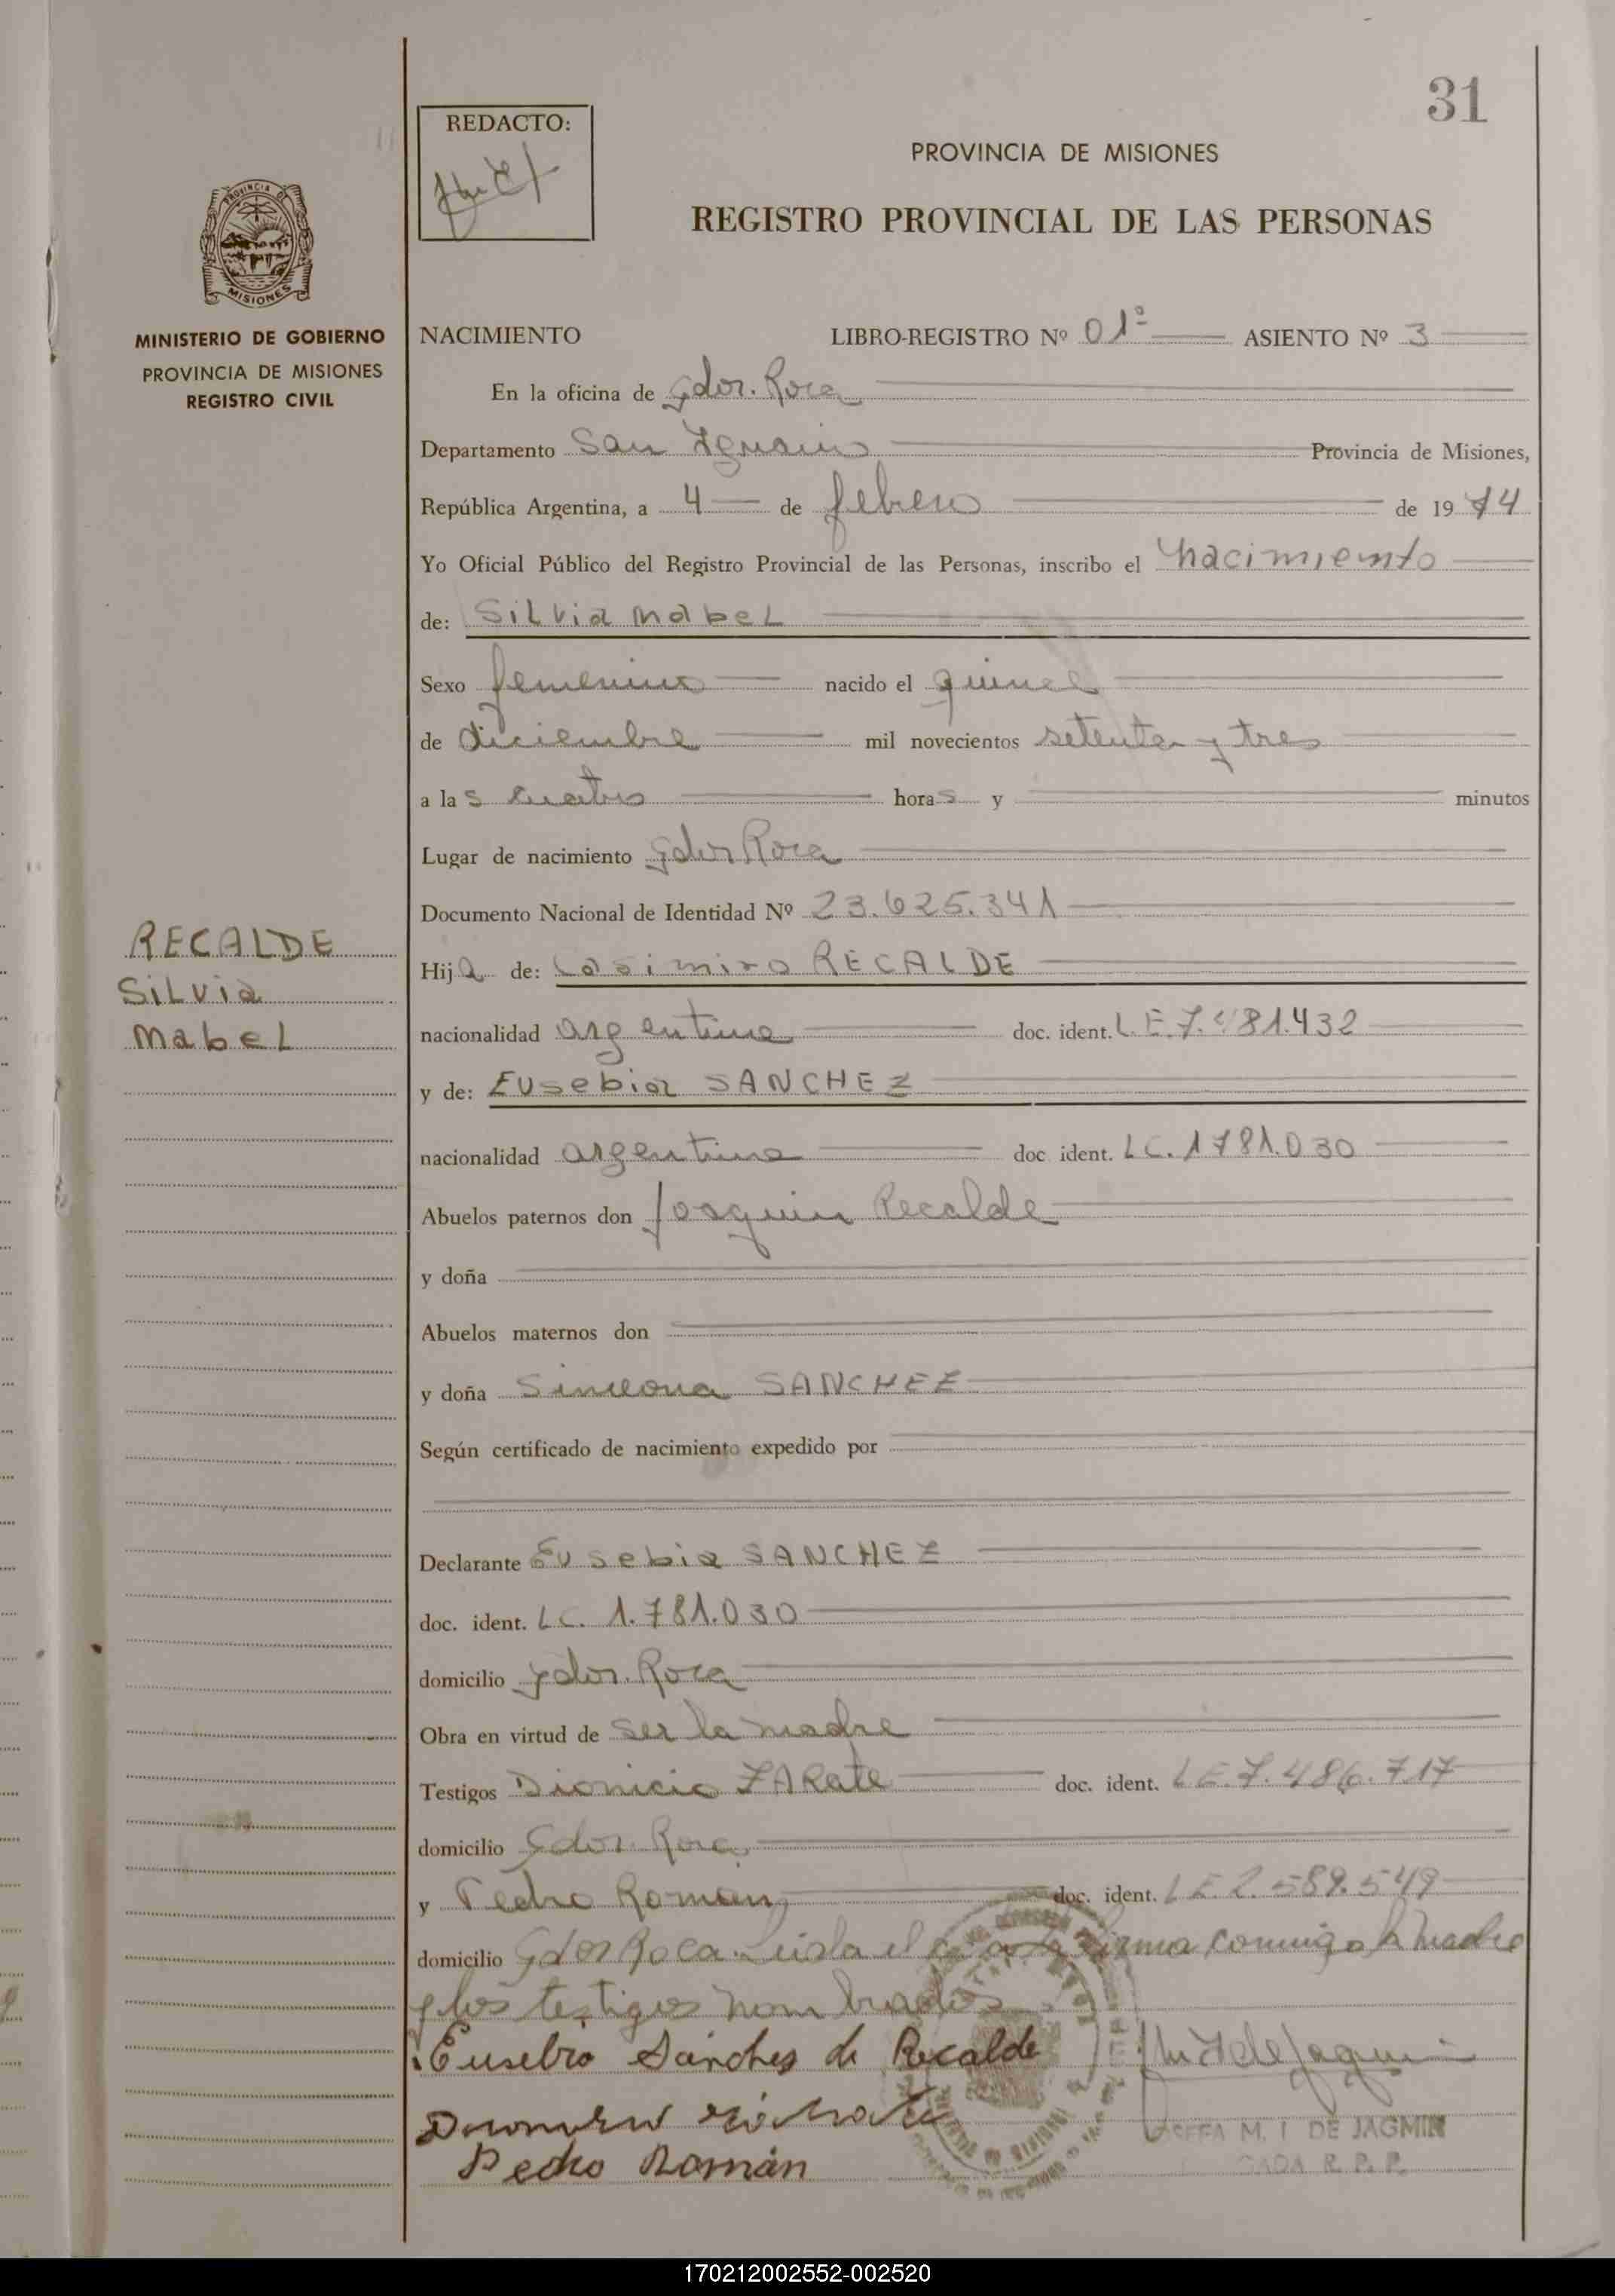 31
REDACTO:
PROVINCIA DE MISIONES
REGISTRO PROVINCIAL DE LAS PERSONAS
PROVINCIA DE
MISIONES
MINISTERIO DE GOBIERNO
PROVINCIA DE MISIONES
REGISTRO CIVIL
NACIMIENTO LIBRO-REGISTRO Nº 01º ASIENTO Nº 3
En la oficina de Gdor. Roca
Departamento San Ignacio Provincia de Misiones,
República Argentina, a 4 de febrero de 1974
Yo Oficial Público del Registro Provincial de las Personas, inscribo el nacimiento
de: Silvia Mabel
Sexo femenino nacido el quince
de diciembre mil novecientos setenta y tres
a las cuatro horas y minutos
Lugar de nacimiento Gdor Roca
Documento Nacional de Identidad Nº 23.625.341
RECALDE
Silvia
Mabel
Hija de: Casimiro RECALDE
nacionalidad argentina doc. ident. L.E. 81.432
y de: Eusebia SANCHEZ
nacionalidad argentina doc. ident. LC. 1781.030
Abuelos paternos don Joaquin Recalde
y doña
Abuelos maternos don
y doña Simeona SANCHEZ
Según certificado de nacimiento expedido por
Declarante Eusebia SANCHEZ
doc. ident. LC. 1.781.030
domicilio Gdor. Roca
Obra en virtud de ser la madre
Testigos Dionicio ZARate doc. ident. LE.7.486.717
domicilio Gdor. Roca
y Pedro Roman doc. ident. LE.2.589.549
domicilio Gdor Roca. Leida el acta la firma conmigo la madre
y los testigos nombrados
Eusebio Sánches de Recalde
Pedro Román
JOSEFA M. I. DE JAGMIN
R. P. P.
170212002552-002520